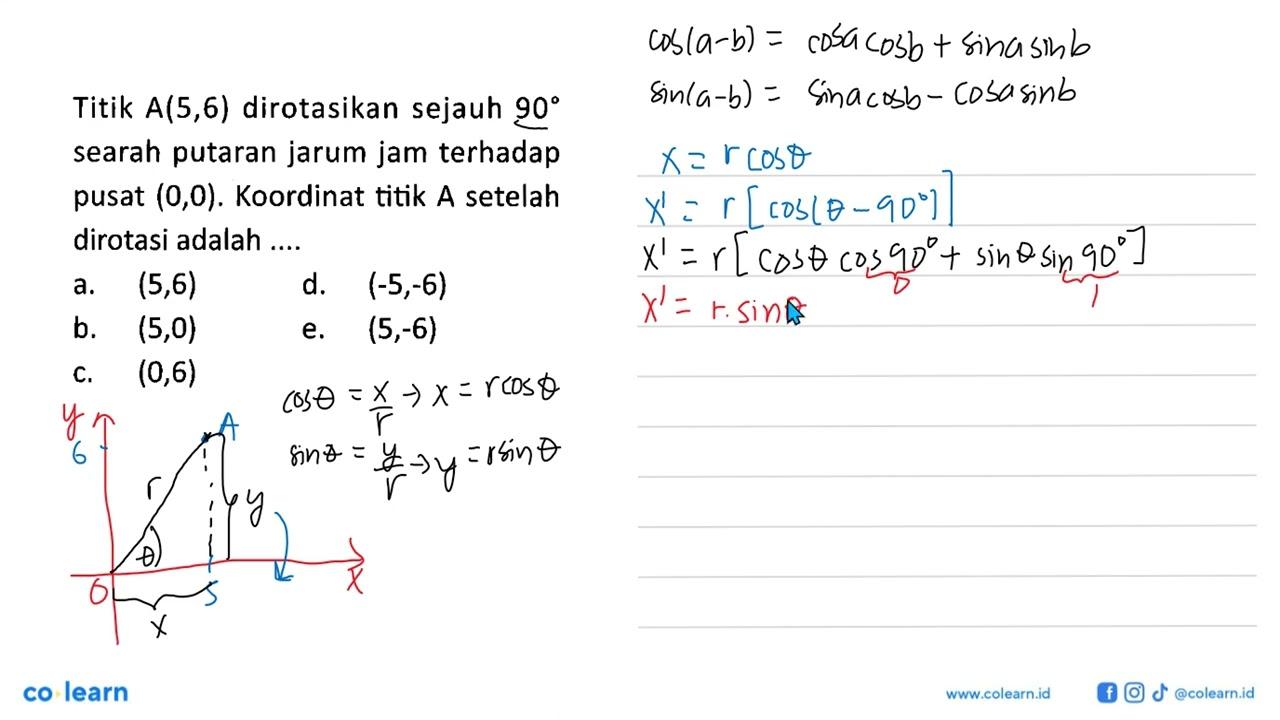 Titik A(5,6) dirotasikan sejauh 90°
searah putaran jarum jam terhadap
pusat (0,0). Koordinat titik A setelah
dirotasi adalah ....
a. (5,6) d. (-5,-6)
b. (5,0) e. (5,-6)
c. (0,6)
cosθ = x/r → x = r cosθ
sinθ = y/r → y = r sinθ
y
6
A
r
y
θ
O
5
X
x
cos(a-b) = cosa cosb + sina sinb
sin(a-b) = sina cosb - cosa sinb
x = r cosθ
x' = r [cos(θ - 90°)]
x' = r [cosθ cos 90° + sinθ sin 90°]
0 1
x' = r. sinθ
co learn
www.colearn.id @colearn.id